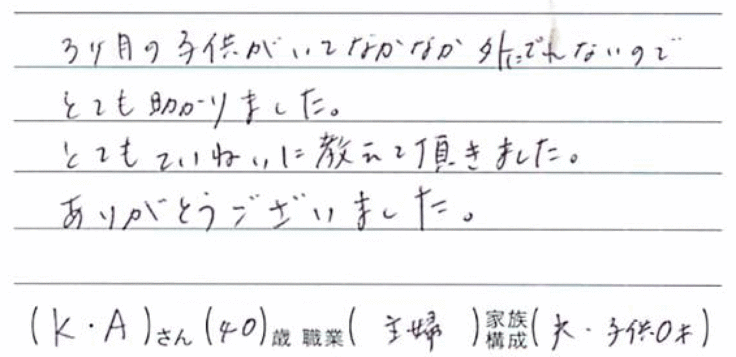 3ヶ月の子供がいてなかなか外にでれないので
とても助かりました。
とてもていねいに教えて頂きました。
ありがとうございました。
(K・A)さん(40)歳 職業(主婦)家族構成(夫・子供0才)